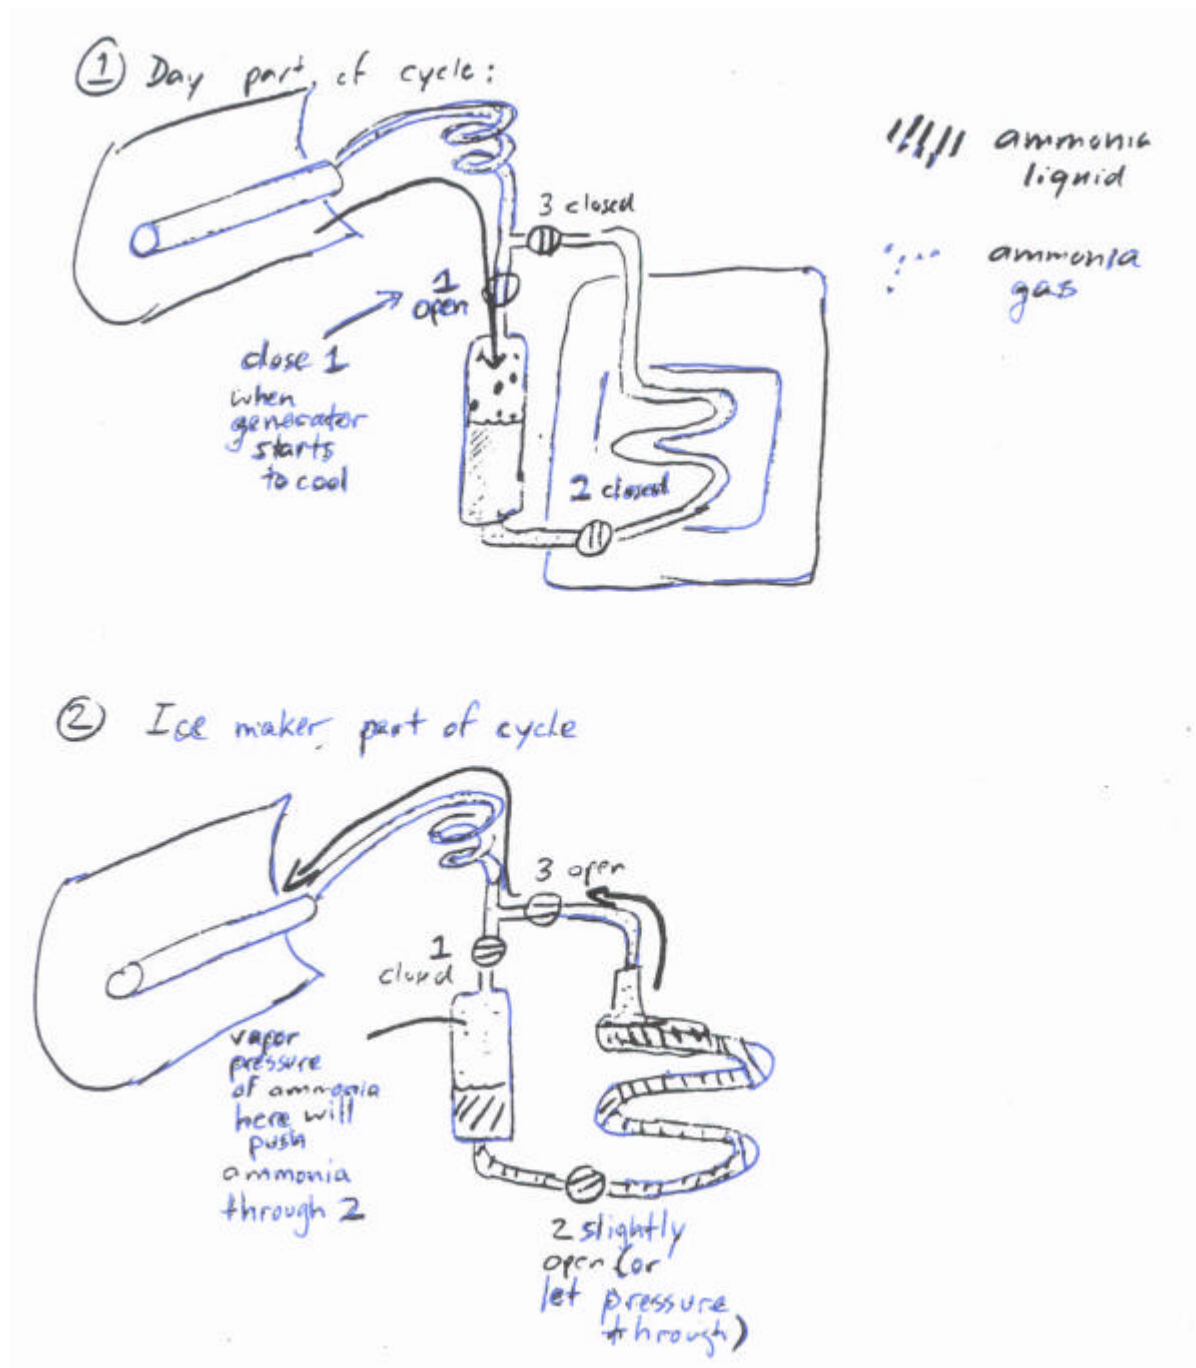 ① Day part of cycle:
ammonia
liquid
ammonia
gas
3 closed
1
open
close 1
when
generator
starts
to cool
2 closed
② Ice maker part of cycle
3 open
1
closed
vapor
pressure
of ammonia
here will
push
ammonia
through 2
2 slightly
open (or
let pressure
through)